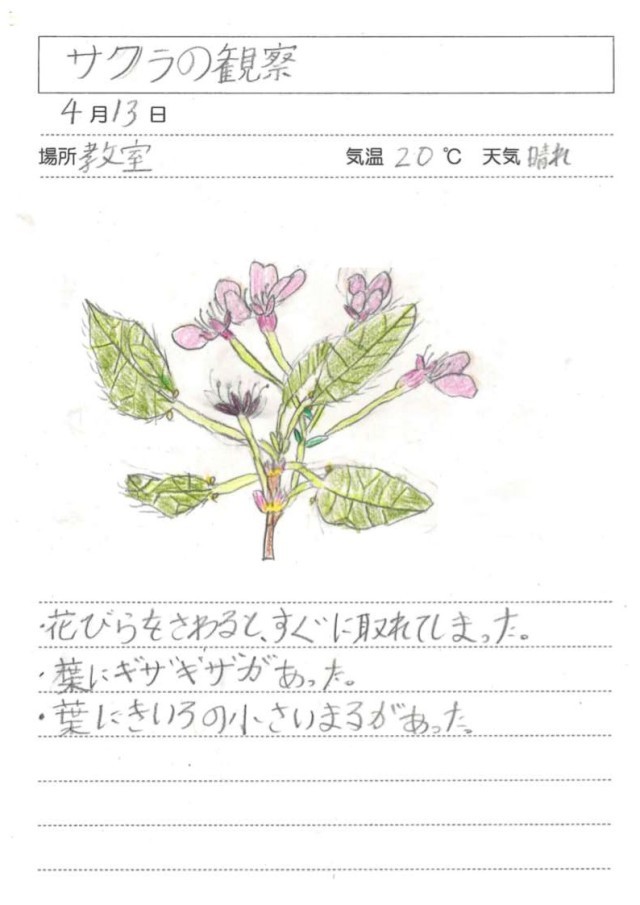 サクラの観察
4月13日
場所 教室 気温 20℃ 天気 晴れ
・花びらをさわると、すぐに取れてしまった。
・葉にギザギザがあった。
・葉にきいろの小さいまるがあった。